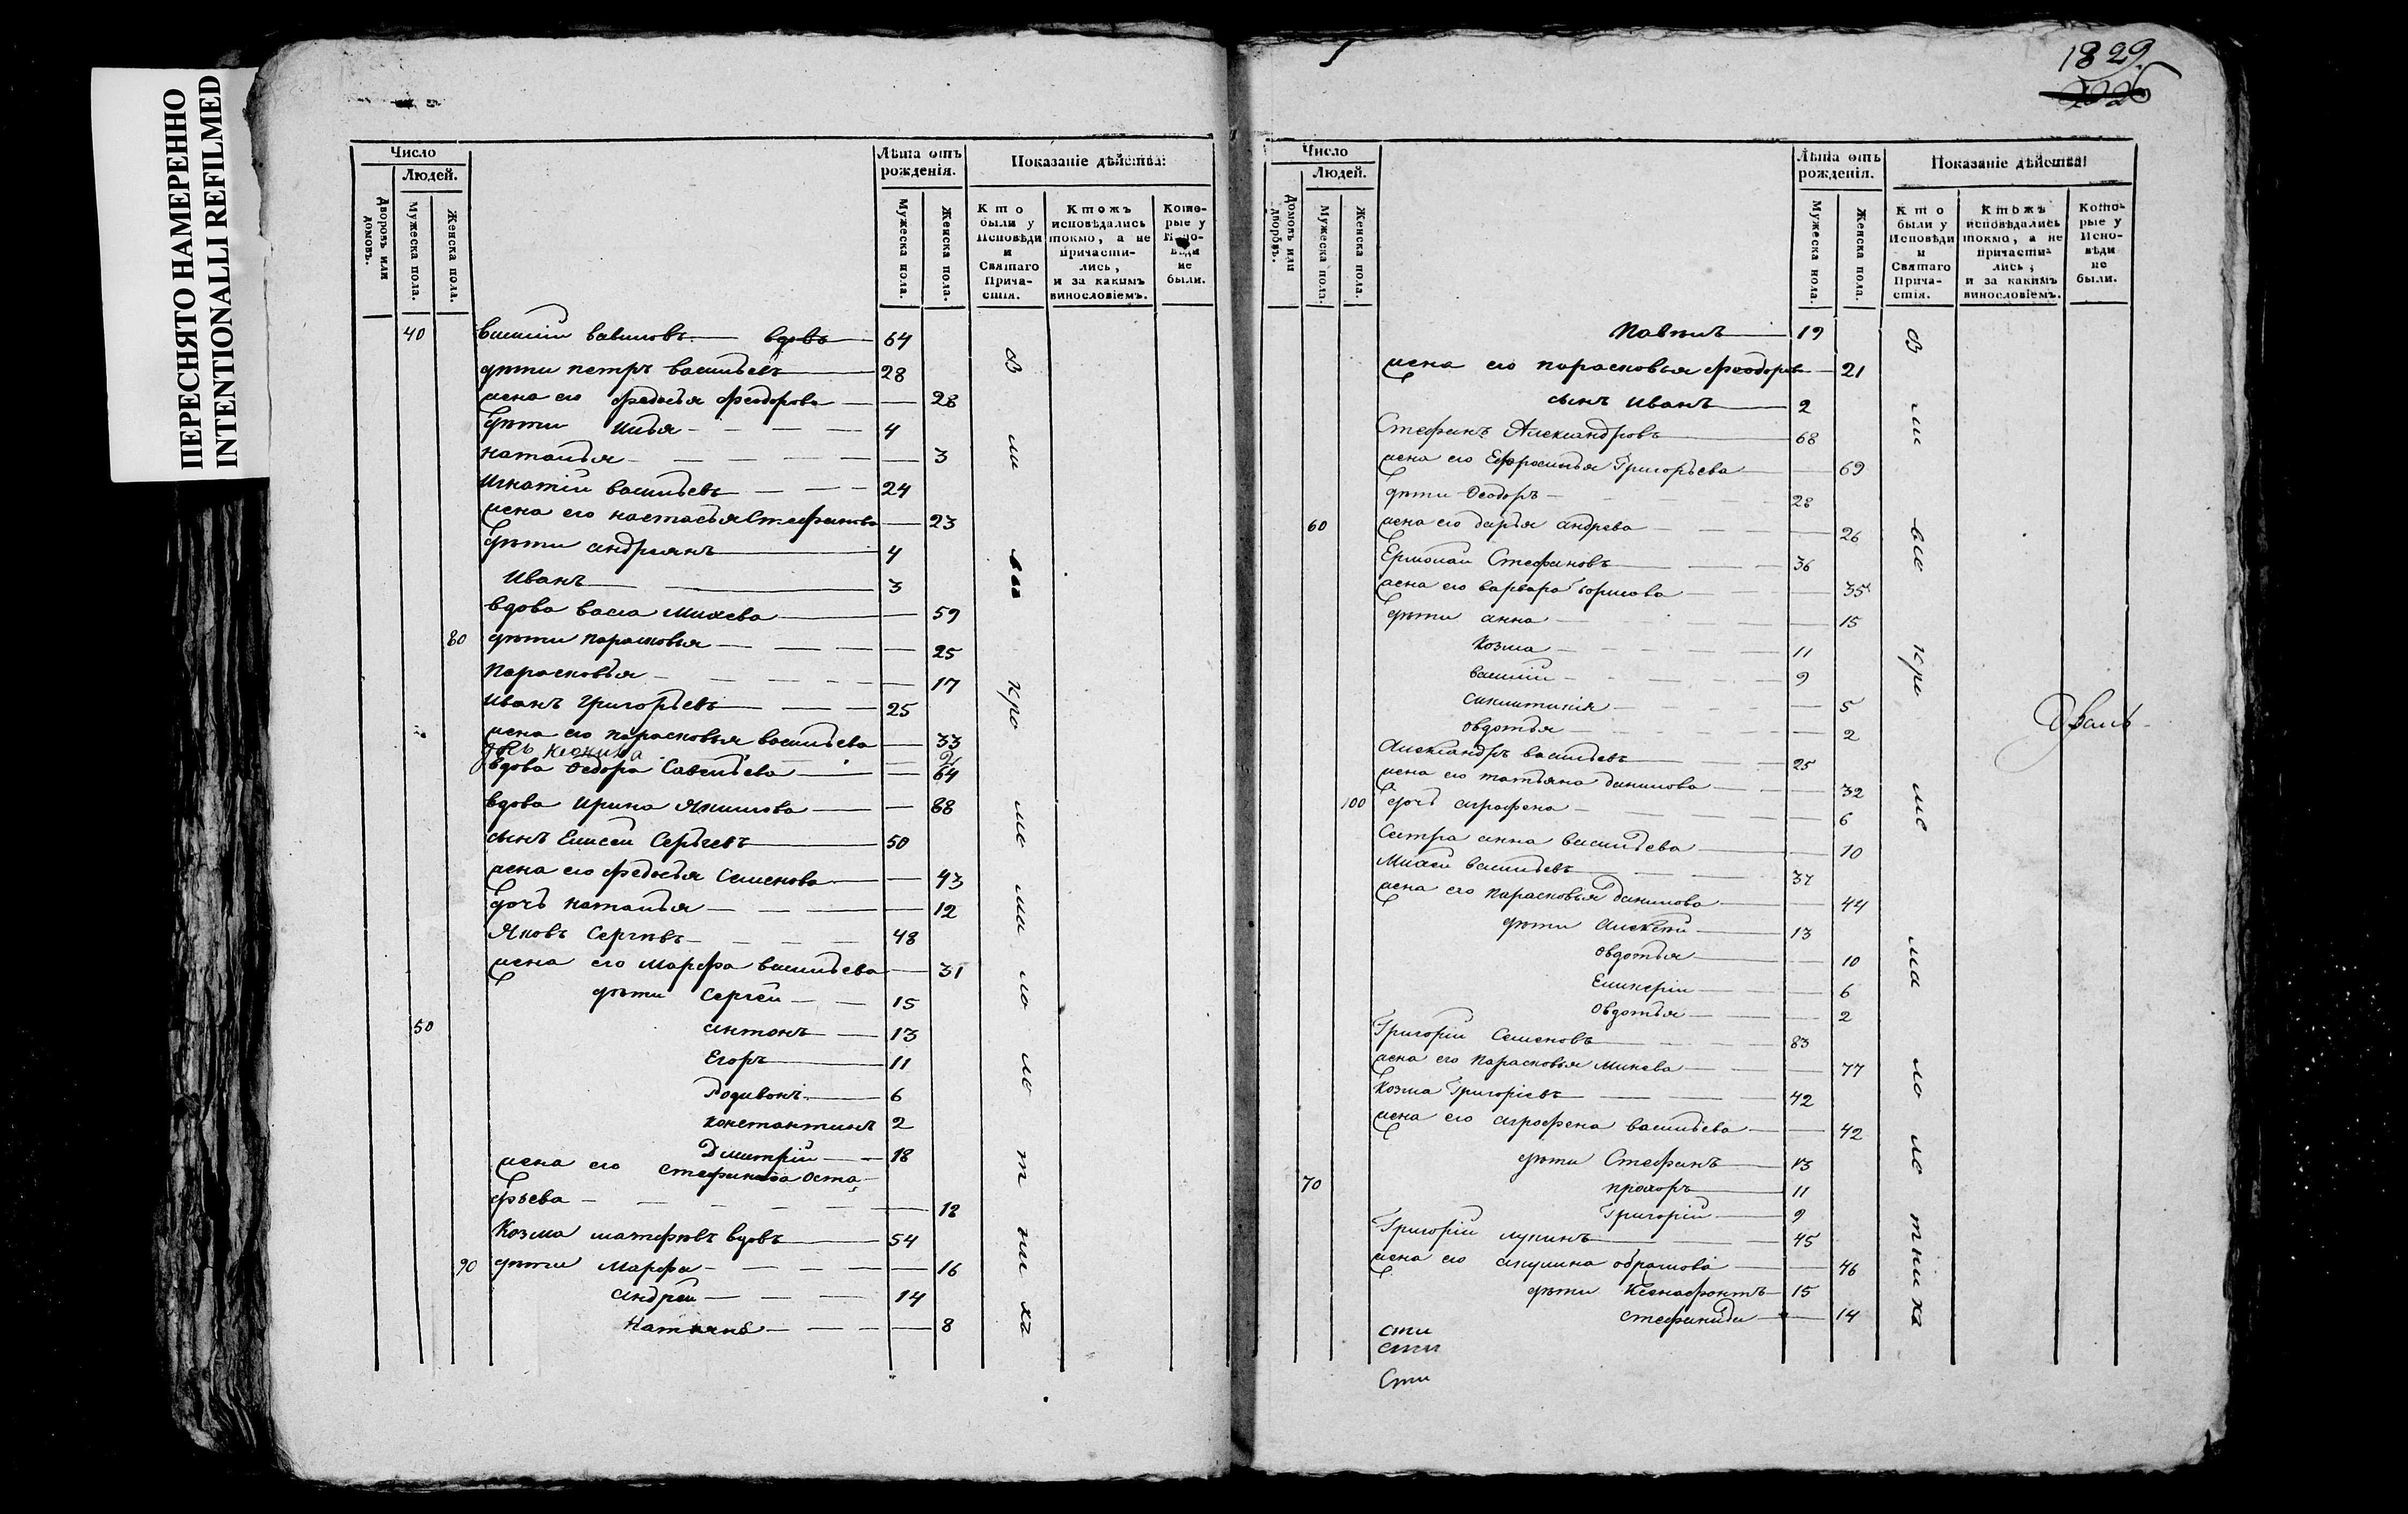 ПЕРЕСНЯТО НАМЕРЕННО
INTENTIONALLI REFILMED
Число
Людей.
Дворовъ или домовъ.
Мужеска пола.
Женска пола.
Лѣта отъ рожденія.
Мужеска пола.
Женска пола.
Показаніе дѣйства:
Кто были у Исповѣди и Святаго Причастія.
Ктожъ исповѣдались токмо, а не причастились, и за какимъ винословіемъ.
Которые у Исповѣди не были.
40 василій вавиловъ вдовъ 64
дѣти петръ васильевъ 28
жена его федосья феодорова 28
дѣти илья 4
наталья 3
игнатій васильевъ 24
жена его настасья Стефанова 23
дѣти андреянъ 4
Иванъ 3
вдова васса Михеева 59
80 дѣти парасковья 25
парасковья 17
иванъ григорьевъ 25
жена его парасковья васильева 33
дочь 2
вдова федора Савельева 64
вдова ирина Якимова 68
сынъ Елисей Сергѣевъ 50
жена его федосья Семенова 43
дочь наталья 12
Яковъ Сергѣевъ 48
жена его марфа васильева 31
дѣти Сергей 15
50 антонъ 13
Егоръ 11
Родивонъ 6
константинъ 2
Дмитрій 18
жена его стефанида Оста-
фьева 18
Козма матфѣевъ вдовъ 54
90 дѣти марфа 16
андрей 14
8
1829
Число
Людей.
Домовъ или дворовъ.
Мужеска пола.
Женска пола.
Лѣта отъ рожденія.
Мужеска пола.
Женска пола.
Показаніе дѣйства:
Кто были у Исповѣди и Святаго Причастія.
Ктожъ исповѣдались токмо, а не причастились, и за какимъ винословіемъ.
Которые у Исповѣди не были.
Павелъ 19
жена его парасковья феодорова 21
сынъ иванъ 2
Стефанъ Александровъ 68
жена его Ефросинья Григорьева 69
дѣти Феодоръ 28
60 жена его дарья андреева 26
Ермолай Стефановъ 36
жена его варвара борисова 35
дѣти анна 15
Козма 11
василій 9
синклитикія 5
овдотья 2
Александръ васильевъ 25
жена его татьяна данилова 32
100 дочь агрофена 6
Сестра анна васильева 10
Михей васильевъ 37
жена его парасковья данилова 44
дѣти Алексѣй 13
овдотья 10
6
Овдотья 2
Григорій Семеновъ 83
жена его парасковья Минеева 77
Козма Григоріевъ 42
жена его агрофена васильева 42
дѣти Стефанъ 13
70 прохоръ 11
Григорій 9
Григорій лукинъ 45
жена его акулина обрамова 46
дѣти Ксенофонтъ 15
стефанида 14
сти
сти
Сти